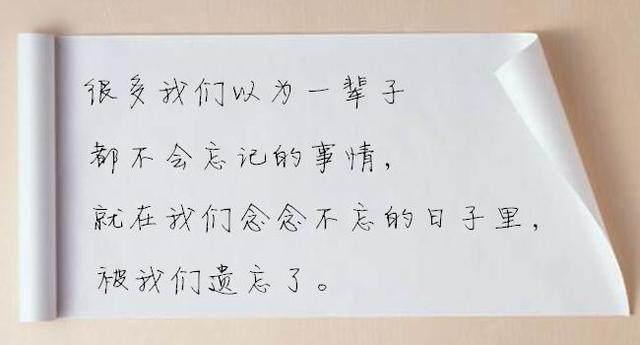 很多我们以为一辈子
都不会忘记的事情，
就在我们念念不忘的日子里，
被我们遗忘了。